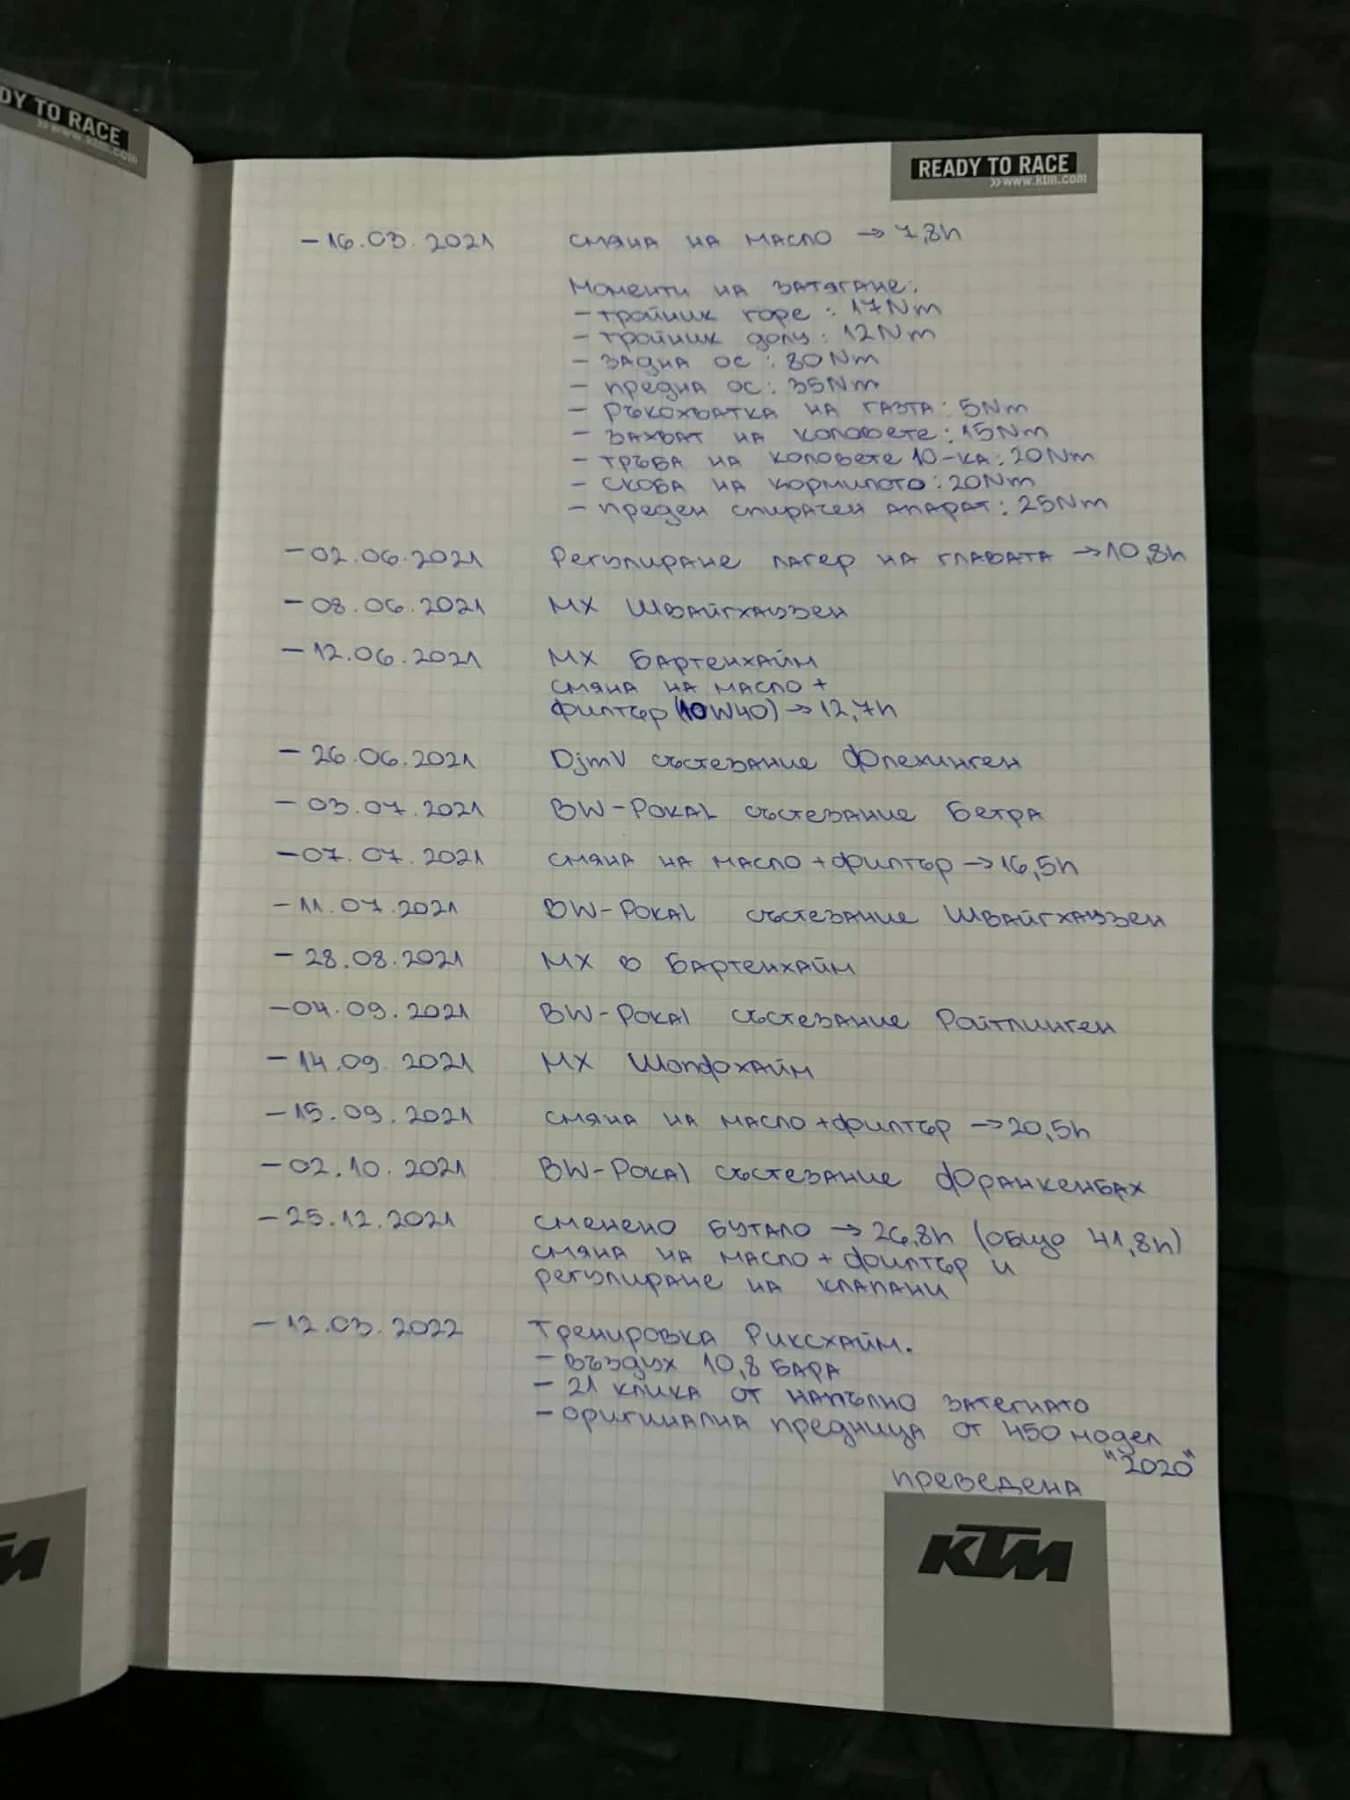 DY TO RACE
»www.ktm.com
READY TO RACE
»www.ktm.com
- 16.03.2021 смяна на масло → 7,8h
Моменти на затягане:
- тройник горе : 17Nm
- тройник долу : 12Nm
- задна ос : 80Nm
- предна ос : 35Nm
- ръкохватка на газта : 5Nm
- захват на коловете : 15Nm
- тръба на коловете 10-ка : 20Nm
- скоба на кормилото : 20Nm
- преден спирачен апарат : 25Nm
- 02.06.2021 Регулиране лагер на главата → 10,8h
- 08.06.2021 МХ Швайгхаузен
- 12.06.2021 МХ Бартенхайм
смяна на масло +
филтър (10W40) → 12,7h
- 26.06.2021 DjmV състезание Флехинген
- 03.07.2021 BW-Pokal състезание Бетра
- 07.07.2021 смяна на масло + филтър → 16,5h
- 11.07.2021 BW-Pokal състезание Швайгхаузен
- 28.08.2021 МХ в Бартенхайм
- 04.09.2021 BW-Pokal състезание Ройтлинген
- 14.09.2021 МХ Шопфхайм
- 15.09.2021 смяна на масло + филтър → 20,5h
- 02.10.2021 BW-Pokal състезание Франкенбах
- 25.12.2021 сменено бутало → 26,8h (общо 41,8h)
смяна на масло + филтър и
регулиране на клапани
- 12.03.2022 Тренировка Риксхайм.
- въздух 10,8 бара
- 21 клика от напълно затегнато
- оригинална предница от 450 модел
"2020"
преведена
KTM